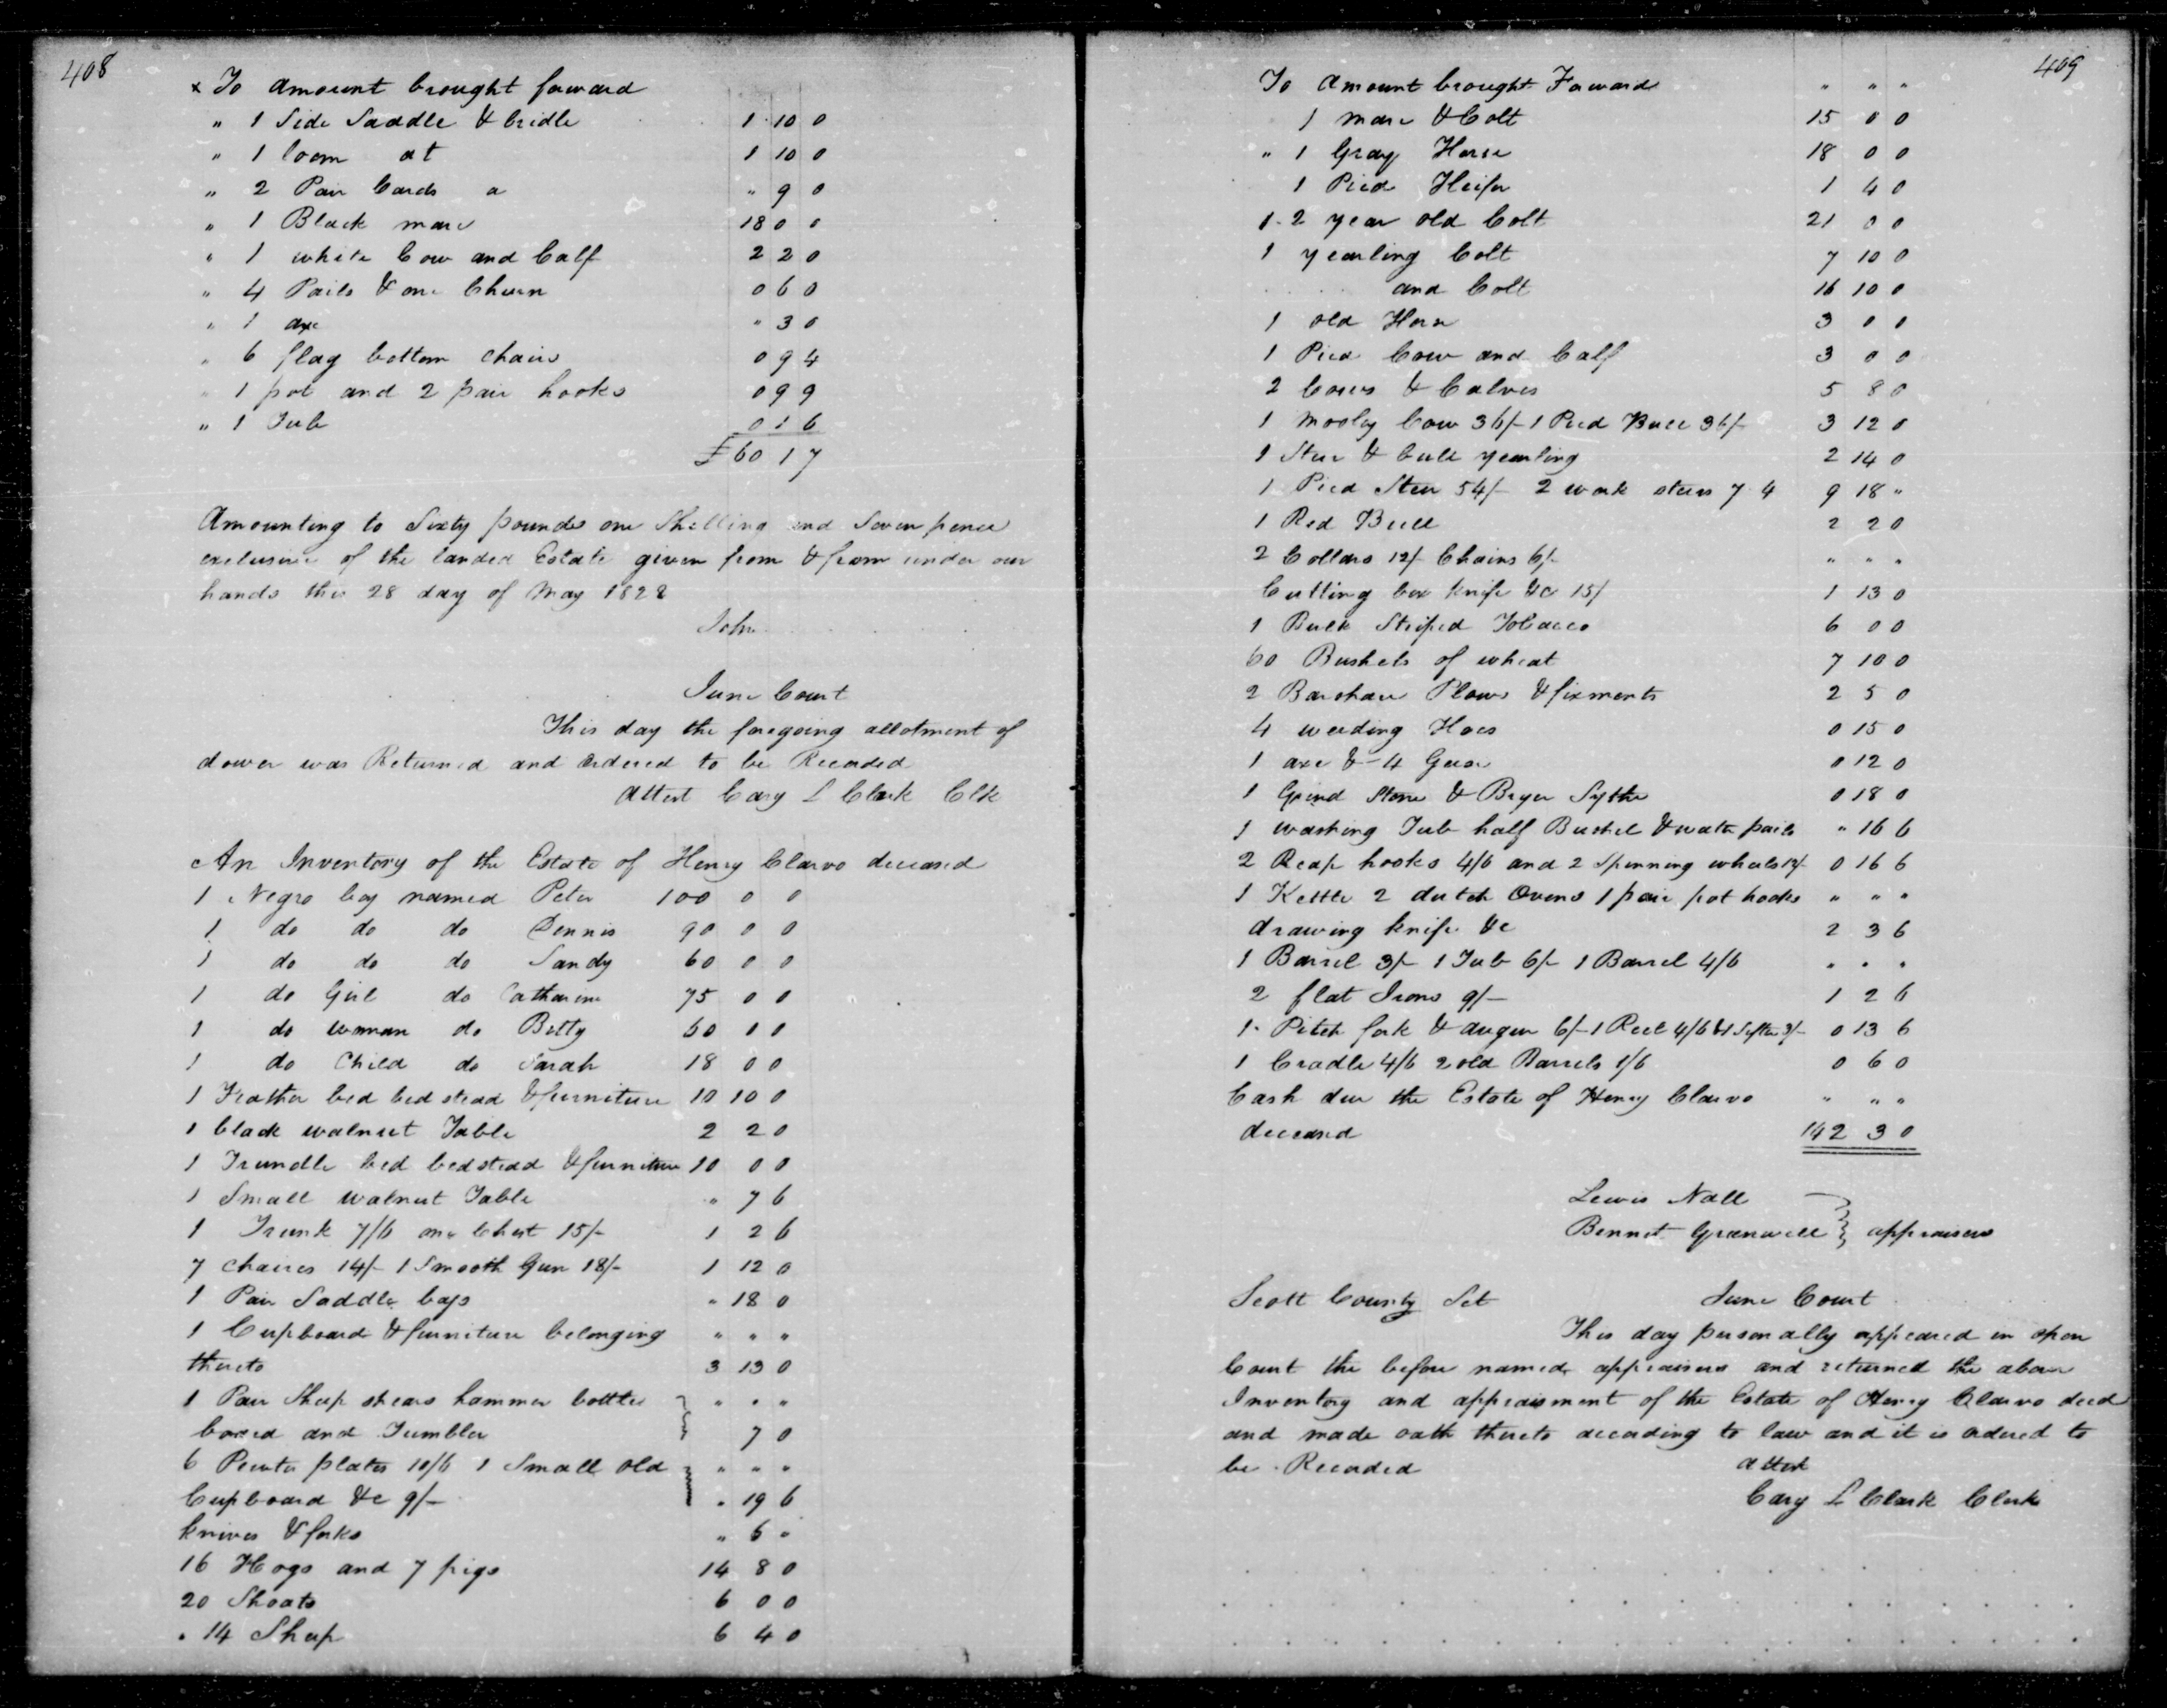 408
x To amount brought forward
" 1 Side Saddle & bridle 1 10 0
" 1 loom at 1 10 0
" 2 Pair Cards a " 9 0
" 1 Black mare 18 0 0
" 1 white Cow and Calf 2 2 0
" 4 Pails & one Churn 0 6 0
" 1 axe " 3 0
" 6 flag bottom chairs 0 9 4
" 1 pot and 2 pair hooks 0 9 9
" 1 Tub 0 1 6
£60 1 7
Amounting to Sixty pounds one Shilling and Seven pence
exclusive of the landed Estate given from & from under our
hands this 28 day of May 1822
John
June Court
This day the foregoing allotment of
dower was Returned and ordered to be Recorded
Attest Cary L Clark Clk
An Inventory of the Estate of Henry Clarvo deceased
1 Negro boy named Peter 100 0 0
1 do do do Dennis 90 0 0
1 do do do Sandy 60 0 0
1 do Girl do Catharine 75 0 0
1 do woman do Betty 60 0 0
1 do Child do Sarah 18 0 0
1 Feather bed bed stead & furniture 10 10 0
1 black walnut Table 2 2 0
1 Trundle bed bedstead & furniture 10 0 0
1 Small walnut Table " 7 6
1 Trunk 7/6 one Chest 15/- 1 2 6
7 chaires 14/- 1 Smooth Gun 18/- 1 12 0
1 Pair Saddle bags " 18 0
1 Cupboard & furniture belonging " " "
thereto 3 13 0
1 Pair Sheep shears hammer bottles " " "
board and Tumbler 7 0
6 Pewter plates 10/6 1 Small old " " "
Cupboard &c 9/- " 19 6
knives & forks " 6 "
16 Hogs and 7 pigs 14 8 0
20 Shoats 6 0 0
" 14 Sheep 6 4 0
409
To Amount brought Forward " " "
1 mare & Colt 15 0 0
" 1 Gray Horse 18 0 0
1 Pied Heifer 1 4 0
1 - 2 year old Colt 21 0 0
1 yearling Colt 7 10 0
and Colt 16 10 0
1 old Horse 3 0 0
1 Pied Cow and Calf 3 0 0
2 Cows & Calves 5 8 0
1 mooly Cow 36/- 1 Pied Bull 36/- 3 12 0
1 Steer & bull yearling 2 14 0
1 Pied Steer 54/- 2 work steers 7 4 9 18 "
1 Red Bull 2 2 0
2 Collars 12/- Chains 6/- " " "
Cutting box knife &c 15/ 1 13 0
1 Bulk Striped Tobacco 6 0 0
60 Bushels of wheat 7 10 0
2 Barshare Plows & fixments 2 5 0
4 weeding Hoes 0 15 0
1 axe & 4 Geese 0 12 0
1 Grind Stone & Bryer Sythe 0 18 0
1 washing Tub half Bushel & water pails " 16 6
2 Reap hooks 4/6 and 2 Spinning wheels 12/- 0 16 6
1 Kettle 2 dutch Ovens 1 pair pot hooks " " "
drawing knife &c 2 3 6
1 Barrel 3/- 1 Tub 6/- 1 Barrel 4/6 " " "
2 flat Irons 9/- 1 2 6
1 Pitch fork & auger 6/- 1 Reel 4/6 & 1 Sythe 3/- 0 13 6
1 Cradle 4/6 2 old Barrels 1/6 0 6 0
Cash due the Estate of Henry Clarvo " " "
deceased 142 3 0
Lewis Nall
Bennet Greenwell } appraisers
Scott County Sct June Court
This day personally appeared in open
Court the before named appraisers and returned the above
Inventory and appraisment of the Estate of Henry Clarvo decd
and made oath thereto according to law and it is ordered to
be Recorded Attest
Cary L Clark Clerk